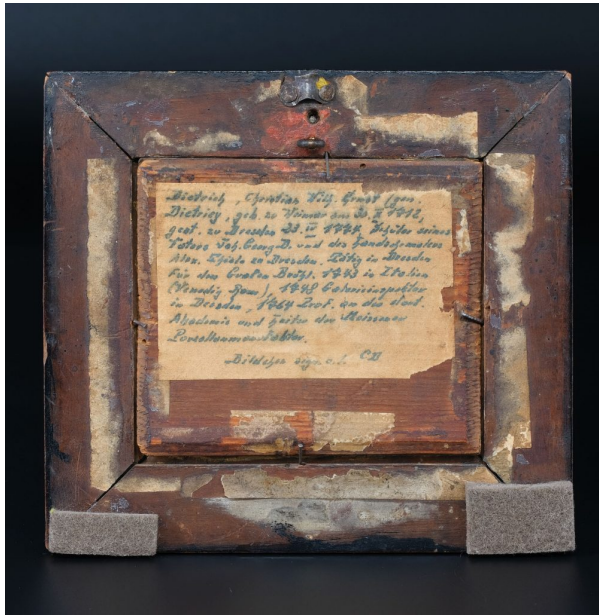 Dietrich, Christian Wilh. Ernst (gen.
Dietricy, geb. zu Weimar am 30. X 1712,
gest. zu Dresden 23. IV 1774. Schüler seines
Vaters Joh. Georg D. und des Landschaftsmalers
Alex. Thiele zu Dresden. Tätig in Dresden
für den Grafen Brühl. 1743 in Italien
(Venedig Rom), 1748 Galerieinspektor
in Dresden, 1764 Prof. an der dort.
Akademie und Leiter der Meissener
Porzellanman.
Bildchen sign. o. l. CD